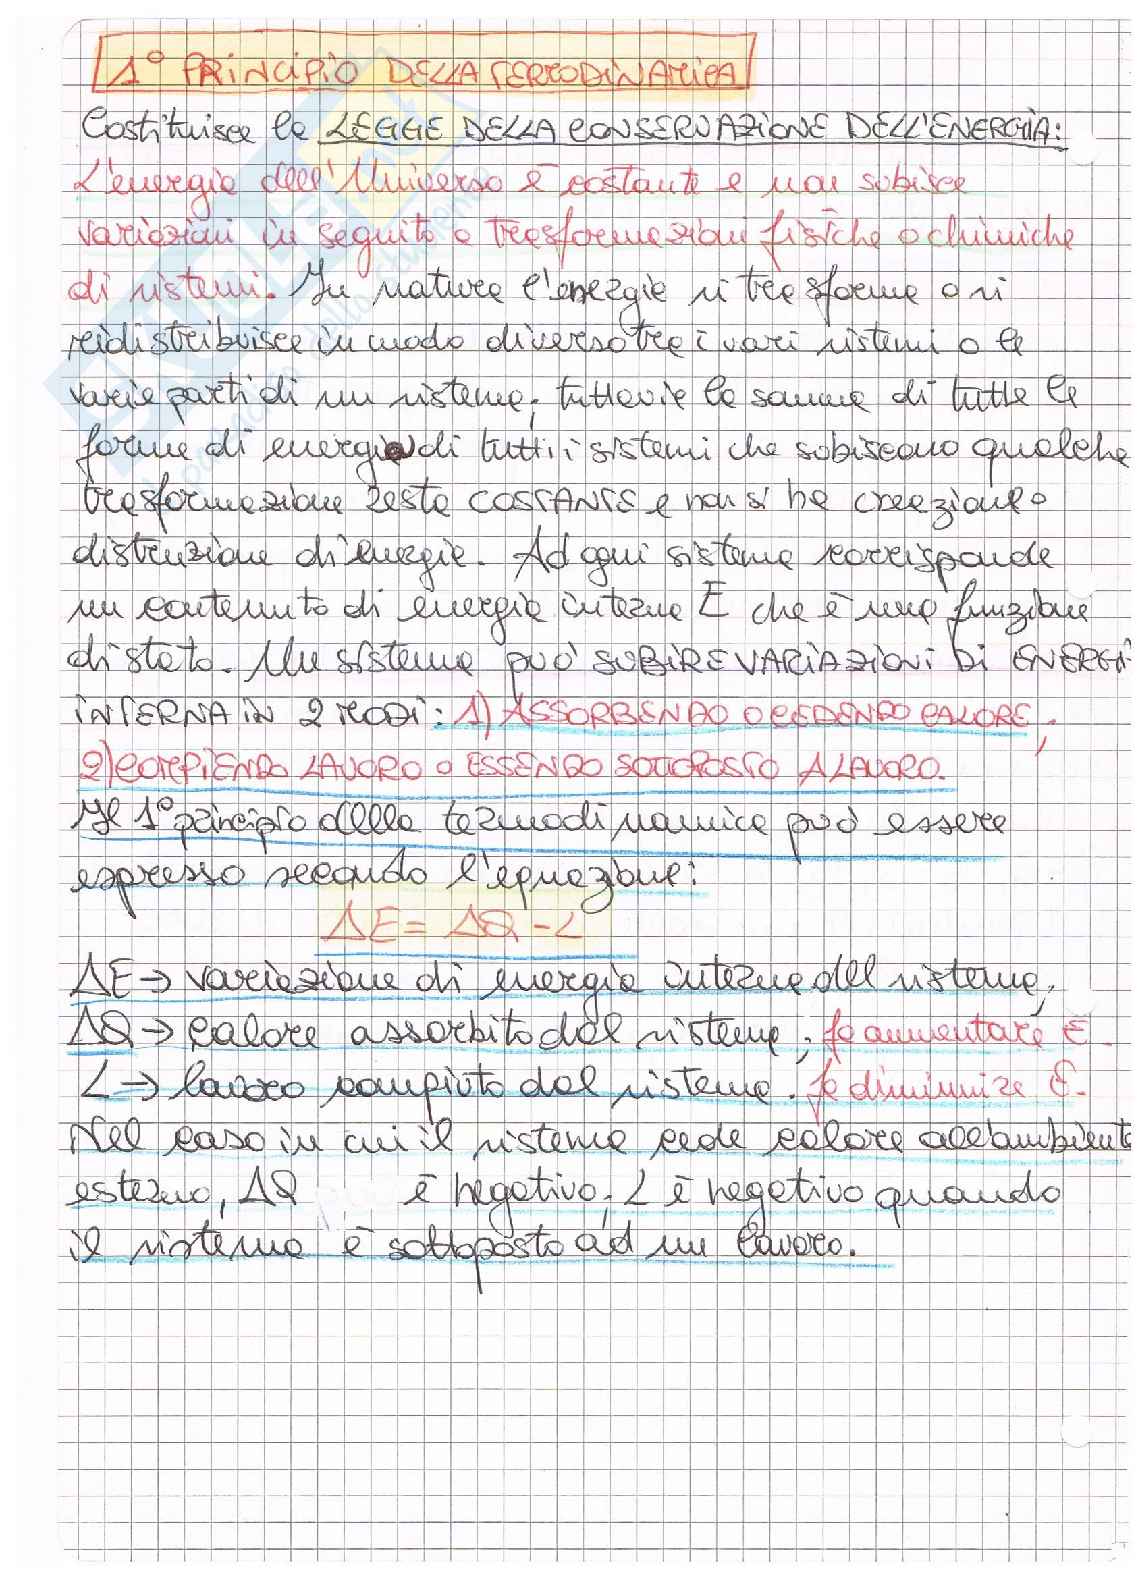 1° PRINCIPIO DELLA TERMODINAMICA
Costituisce la LEGGE DELLA CONSERVAZIONE DELL'ENERGIA:
L'energia dell'Universo è costante e non subisce
variazioni in seguito a trasformazioni fisiche o chimiche
di sistemi. In natura l'energia si trasforma o si
ridistribuisce in modo diverso tra i vari sistemi o le
varie parti di un sistema; tuttavia la somma di tutte le
forme di energia di tutti i sistemi che subiscono qualche
trasformazione resta COSTANTE e non si ha creazione o
distruzione di energia. Ad ogni sistema corrisponde
un contenuto di energia interna E che è una funzione
di stato. Un sistema può SUBIRE VARIAZIONI DI ENERGIA
INTERNA IN 2 MODI: 1) ASSORBENDO O CEDENDO CALORE;
2) COMPIENDO LAVORO O ESSENDO SOTTOPOSTO A LAVORO.
Il 1° principio della termodinamica può essere
espresso secondo l'equazione:
ΔE = ΔQ - L
ΔE → variazione di energia interna del sistema;
ΔQ → calore assorbito dal sistema; fa aumentare E.
L → lavoro compiuto dal sistema. fa diminuire E.
Nel caso in cui il sistema cede calore all'ambiente
esterno, ΔQ è negativo; L è negativo quando
il sistema è sottoposto ad un lavoro.